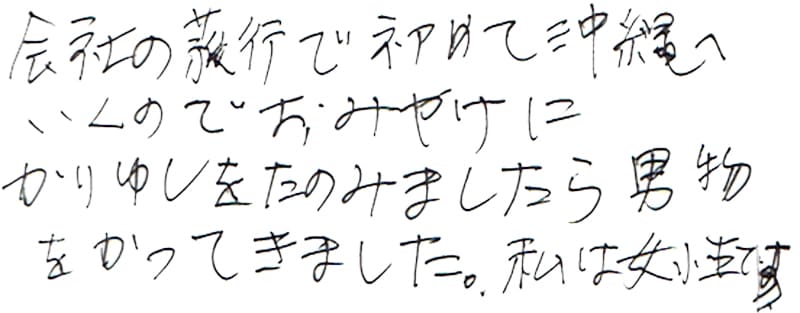 会社の旅行で初めて沖縄へ
いくのでおみやけに
かりゆしをたのみましたら男物
をかってきました。私は女性です